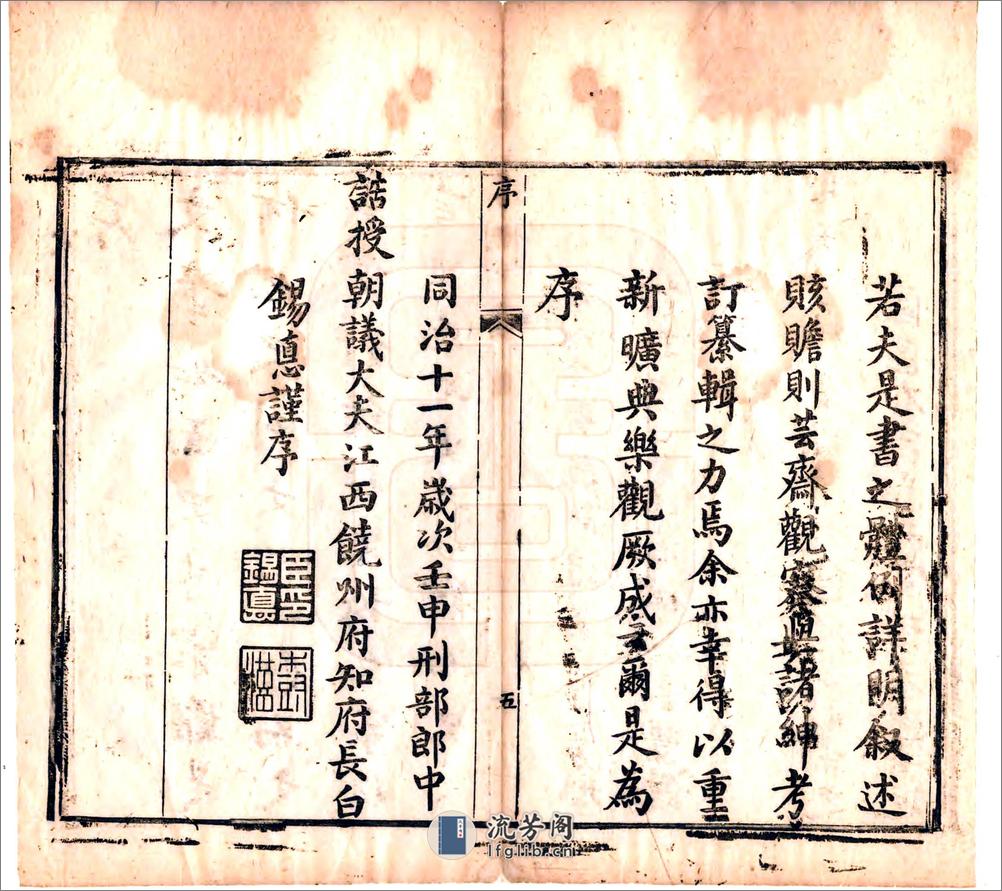 若夫是書之體例詳明叙述
賅贍則芸齋觀察與諸紳考
訂纂輯之力焉余亦幸得以重
新曠典樂觀厥成云爾是為
序
序
五
同治十一年歲次壬申刑部郎中
誥授朝議大夫江西饒州府知府長白
錫悳謹序
臣印錫悳
流芳阁
lfglib.cn